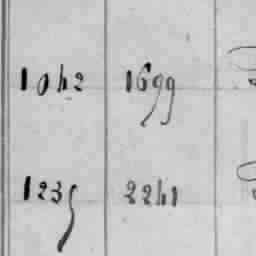 1042 1699
1235 2241